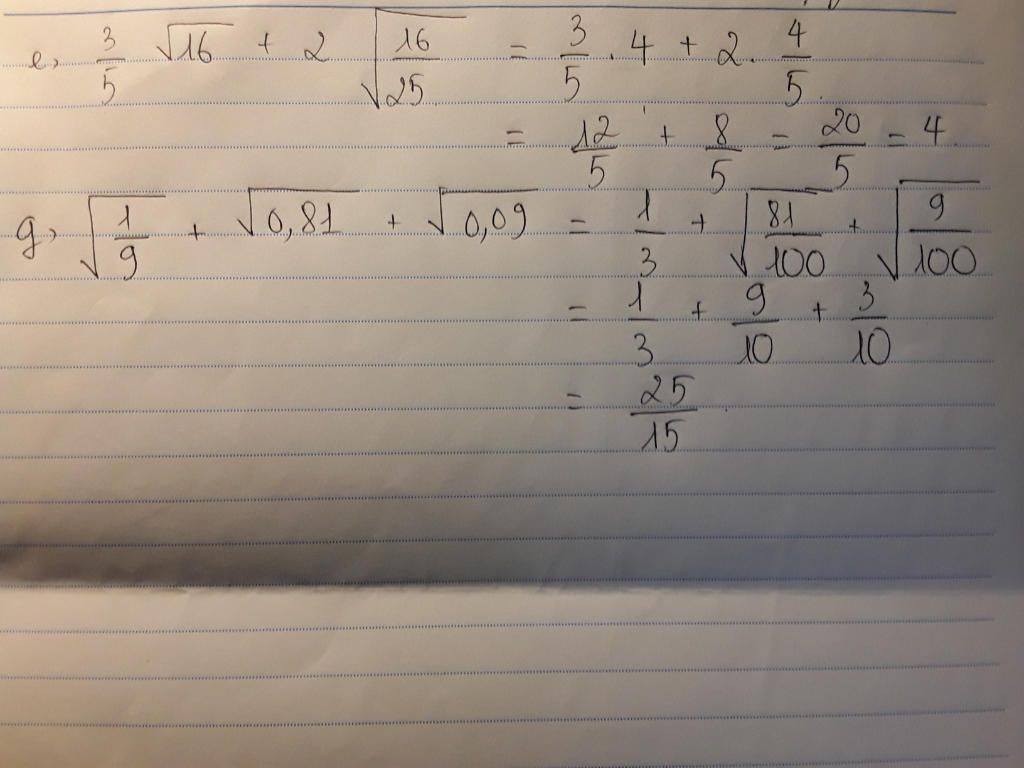 e, 3/5 √16 + 2 √(16/25) = 3/5 . 4 + 2 . 4/5.
= 12/5 + 8/5 = 20/5 = 4.
g, √(1/9) + √0,81 + √0,09 = 1/3 + √(81/100) + √(9/100)
= 1/3 + 9/10 + 3/10
= 25/15.